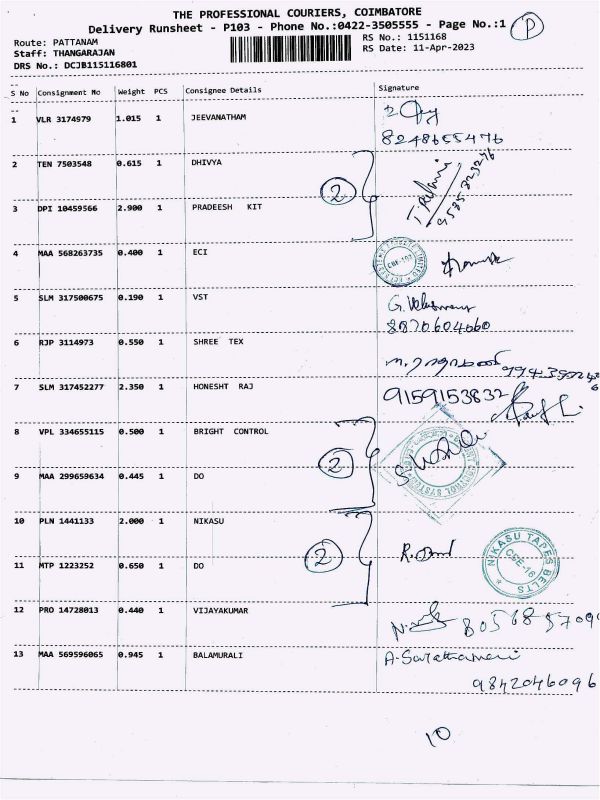 THE PROFESSIONAL COURIERS, COIMBATORE
Delivery Runsheet - P103 - Phone No.:0422-3505555 - Page No.:1 P
Route: PATTANAM RS No.: 1151168
Staff: THANGARAJAN RS Date: 11-Apr-2023
DRS No.: DCJB115116801
S No Consignment No Weight PCS Consignee Details Signature
1 VLR 3174979 1.015 1 JEEVANATHAM
8248655476
2 TEN 7503548 0.615 1 DHIVYA
2
9585323276
3 DPI 10459566 2.900 1 PRADEESH KIT
4 MAA 568263735 0.400 1 ECI
5 SLM 317500675 0.190 1 VST
8870604060
6 RJP 3114973 0.550 1 SHREE TEX
7 SLM 317452277 2.350 1 HONESHT RAJ 9159153832
8 VPL 334655115 0.500 1 BRIGHT CONTROL
2
9 MAA 299659634 0.445 1 DO
10 PLN 1441133 2.000 1 NIKASU
2 NIKASU TAPES BELTS
CBE-16
11 MTP 1223252 0.650 1 DO
12 PRO 14728013 0.440 1 VIJAYAKUMAR
13 MAA 569596065 0.945 1 BALAMURALI
9842046096
10